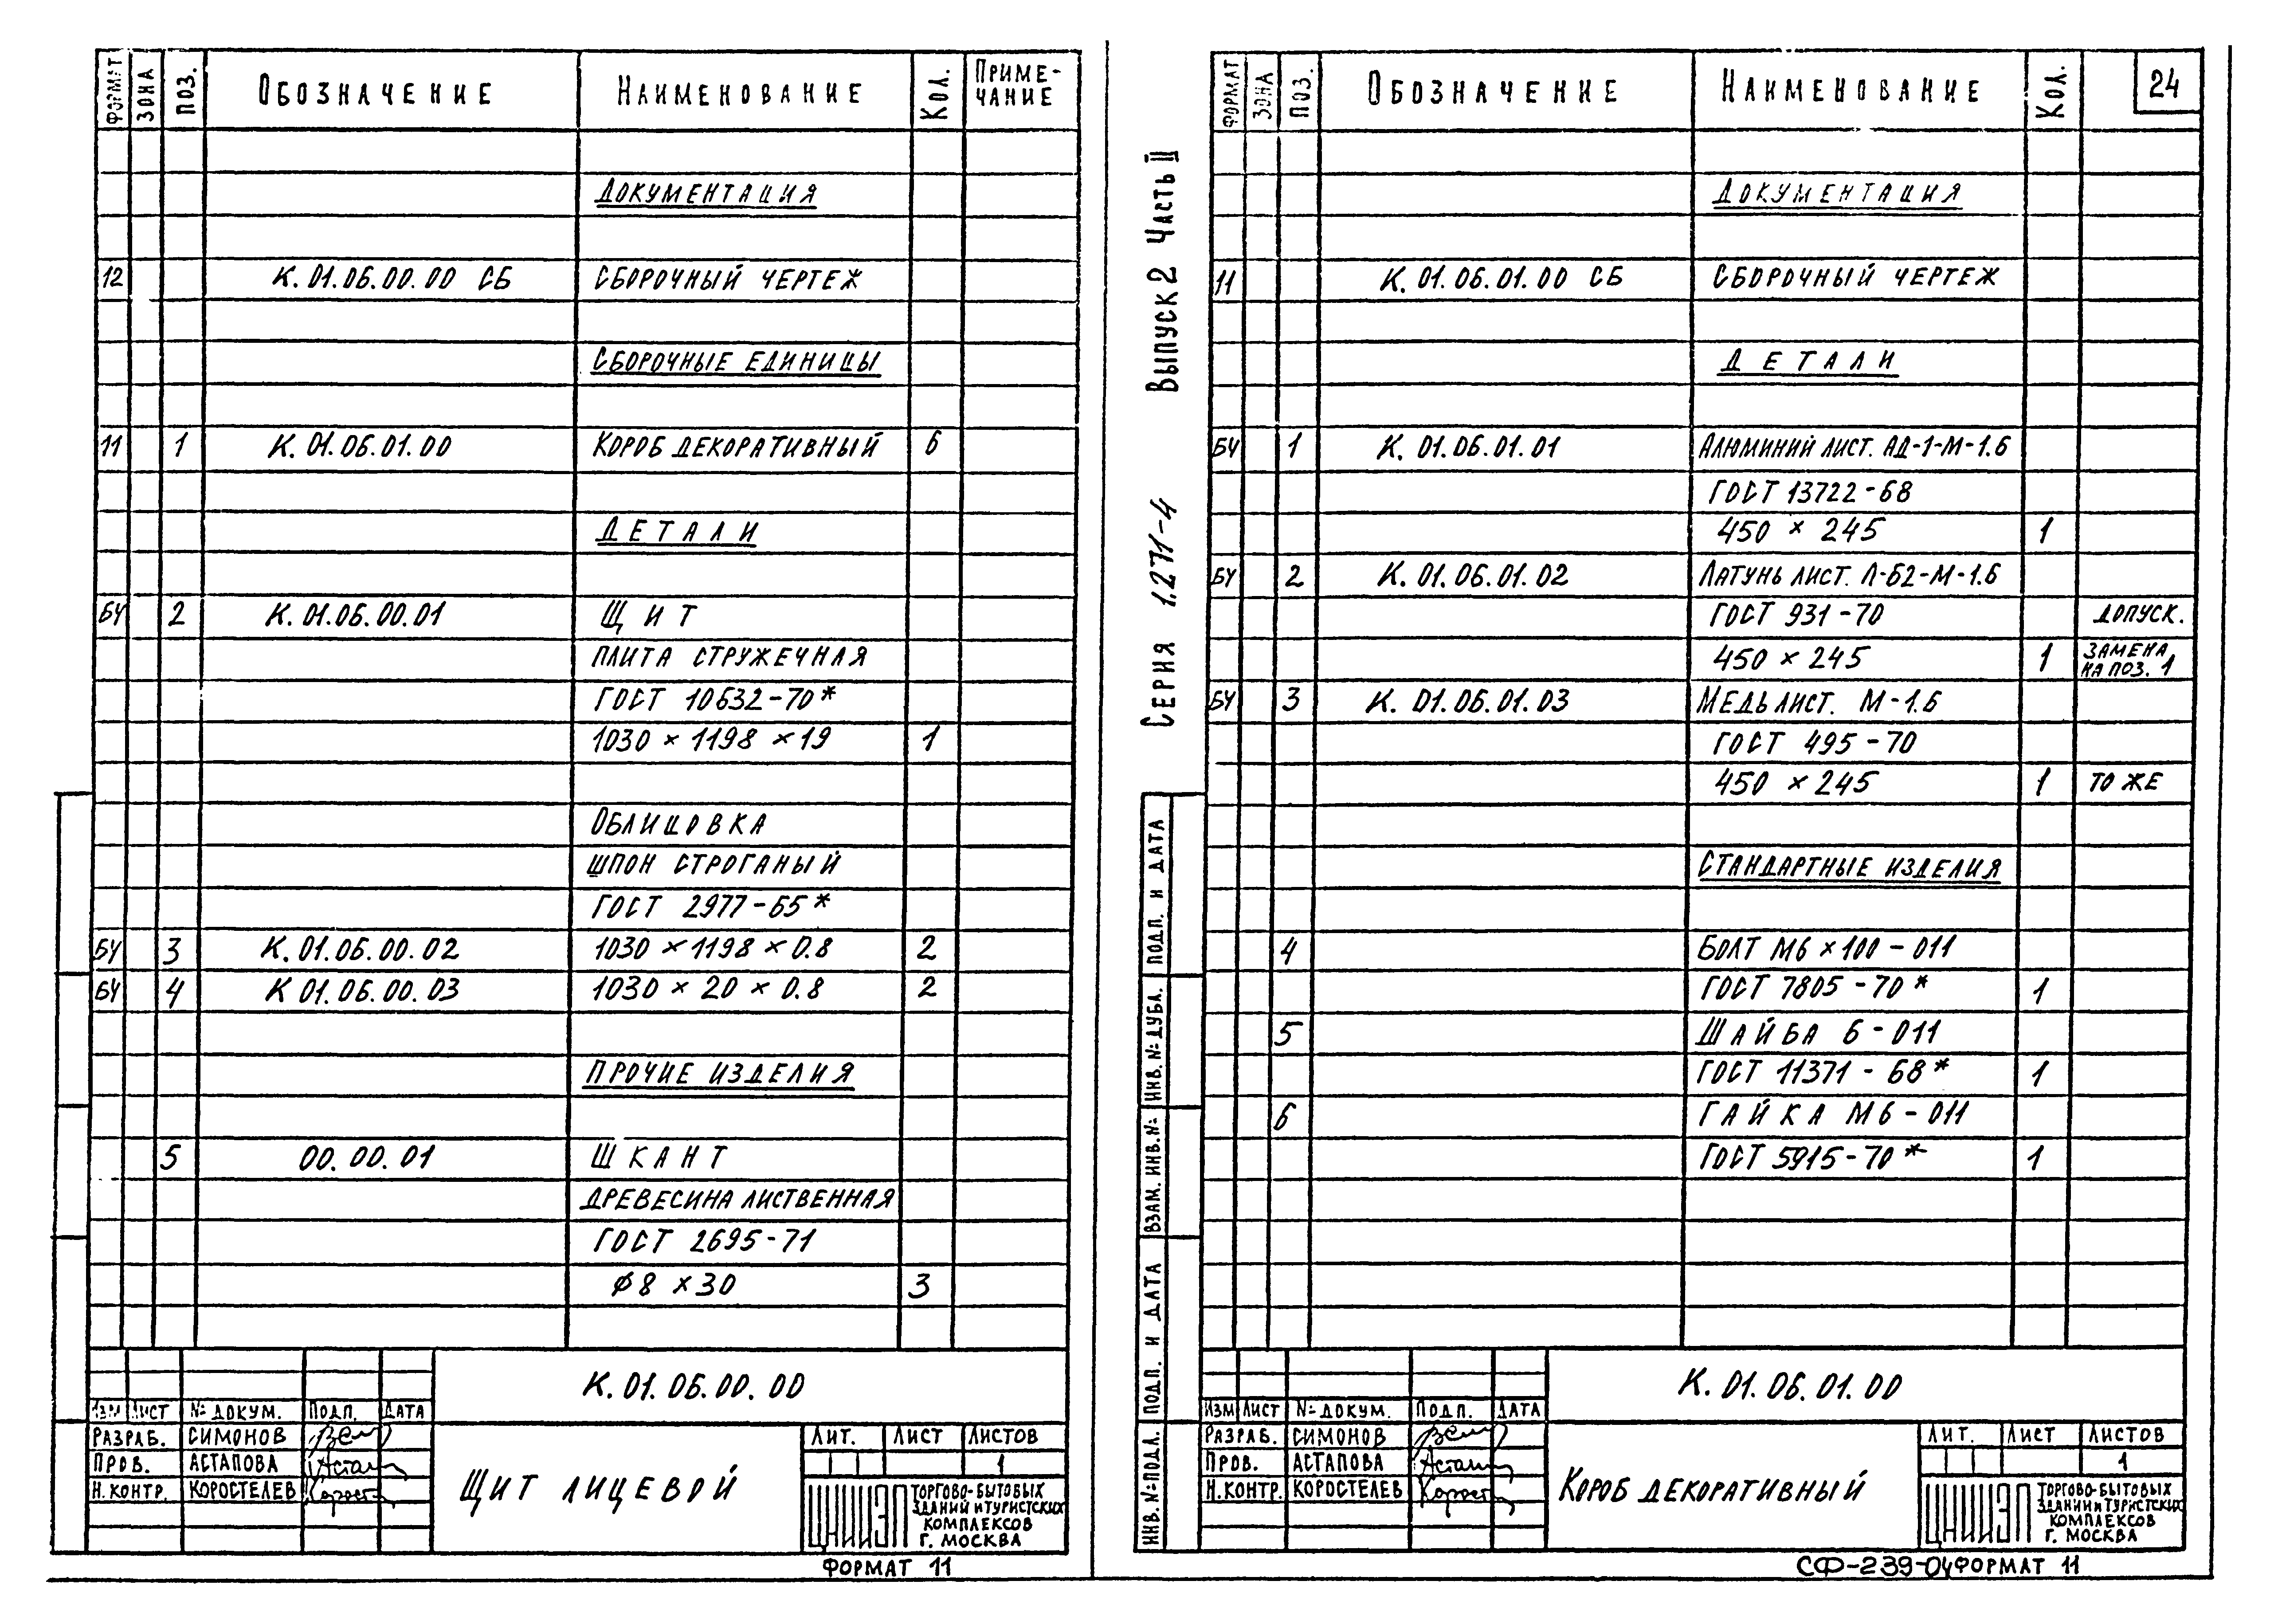 ФОРМАТ ЗОНА ПОЗ. ОБОЗНАЧЕНИЕ НАИМЕНОВАНИЕ КОЛ. ПРИМЕ-
ЧАНИЕ
ДОКУМЕНТАЦИЯ
12 К.01.06.00.00 СБ СБОРОЧНЫЙ ЧЕРТЕЖ
СБОРОЧНЫЕ ЕДИНИЦЫ
11 1 К.01.06.01.00 КОРОБ ДЕКОРАТИВНЫЙ 6
ДЕТАЛИ
БЧ 2 К.01.06.00.01 ЩИТ
ПЛИТА СТРУЖЕЧНАЯ
ГОСТ 10632-70*
1030 × 1198 × 19 1
ОБЛИЦОВКА
ШПОН СТРОГАНЫЙ
ГОСТ 2977-65*
БЧ 3 К.01.06.00.02 1030 × 1198 × 0.8 2
БЧ 4 К 01.06.00.03 1030 × 20 × 0.8 2
ПРОЧИЕ ИЗДЕЛИЯ
5 00.00.01 ШКАНТ
ДРЕВЕСИНА ЛИСТВЕННАЯ
ГОСТ 2695-71
φ8 × 30 3
К.01.06.00.00
ИЗМ ЛИСТ № ДОКУМ. ПОДП. ДАТА
РАЗРАБ. СИМОНОВ
ПРОВ. АСТАПОВА
Н.КОНТР. КОРОСТЕЛЕВ
ЩИТ ЛИЦЕВОЙ
ЛИТ. ЛИСТ ЛИСТОВ
1
ЦНИИЭП ТОРГОВО-БЫТОВЫХ
ЗДАНИЙ И ТУРИСТСКИХ
КОМПЛЕКСОВ
Г. МОСКВА
ФОРМАТ 11
СЕРИЯ 1.271-4 ВЫПУСК 2 ЧАСТЬ II
ФОРМАТ ЗОНА ПОЗ. ОБОЗНАЧЕНИЕ НАИМЕНОВАНИЕ КОЛ. 24
ДОКУМЕНТАЦИЯ
11 К.01.06.01.00 СБ СБОРОЧНЫЙ ЧЕРТЕЖ
ДЕТАЛИ
БЧ 1 К.01.06.01.01 АЛЮМИНИЙ ЛИСТ. АД-1-М-1.6
ГОСТ 13722-68
450 × 245 1
БЧ 2 К.01.06.01.02 ЛАТУНЬ ЛИСТ. Л-62-М-1.6
ГОСТ 931-70 ДОПУСК.
450 × 245 1 ЗАМЕНА
НА ПОЗ. 1
БЧ 3 К.01.06.01.03 МЕДЬ ЛИСТ. М-1.6
ГОСТ 495-70
450 × 245 1 ТО ЖЕ
СТАНДАРТНЫЕ ИЗДЕЛИЯ
4 БОЛТ М6 × 100 - 011
ГОСТ 7805-70* 1
5 ШАЙБА 6-011
ГОСТ 11371-68* 1
6 ГАЙКА М6-011
ГОСТ 5915-70* 1
ПОДП. И ДАТА
ИНВ.№ ДУБЛ.
ВЗАМ. ИНВ.№
ПОДП. И ДАТА
ИНВ.№ ПОДЛ.
К.01.06.01.00
ИЗМ ЛИСТ № ДОКУМ. ПОДП. ДАТА
РАЗРАБ. СИМОНОВ
ПРОВ. АСТАПОВА
Н.КОНТР. КОРОСТЕЛЕВ
КОРОБ ДЕКОРАТИВНЫЙ
ЛИТ. ЛИСТ ЛИСТОВ
1
ЦНИИЭП ТОРГОВО-БЫТОВЫХ
ЗДАНИЙ И ТУРИСТСКИХ
КОМПЛЕКСОВ
Г. МОСКВА
СФ-239-04 ФОРМАТ 11